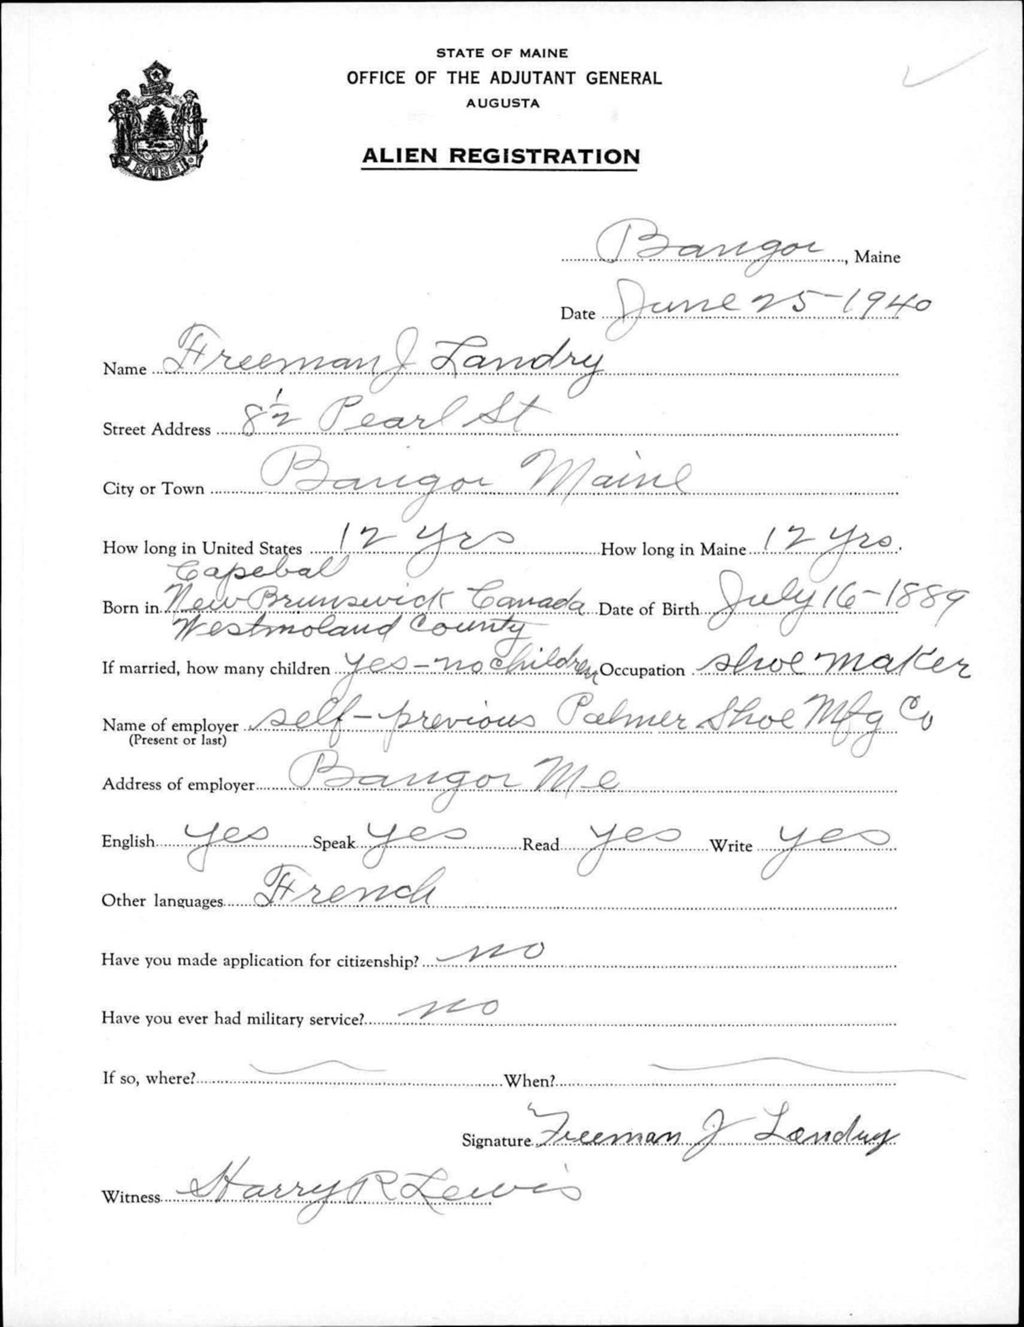 STATE OF MAINE
OFFICE OF THE ADJUTANT GENERAL
AUGUSTA
ALIEN REGISTRATION
MAINE
Bangor, Maine
Date June 25-1940
Name Freeman J Landry
Street Address 8 1/2 Pearl St
City or Town Bangor Maine
How long in United States 12 yrs How long in Maine 12 yrs.
Capebald
Born in New Brunswick Canada Date of Birth July 16-1889
Westmoland County
If married, how many children yes-no children Occupation shoe maker
Name of employer self-previous Palmer Shoe Mfg Co
(Present or last)
Address of employer Bangor Me
English yes Speak yes Read yes Write yes
Other languages French
Have you made application for citizenship? no
Have you ever had military service? no
If so, where? When?
Signature Freeman J Landry
Witness Harry R Lewis